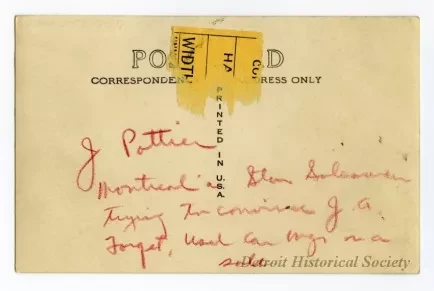 PO D
CORRESPONDEN RESS ONLY
WIDTH
HA
CO
PRINTED IN U.S.A.
J Pottier
Montreal Stan
Trying to convince J. A.
Forget, Used Car on a
Detroit Historical Society